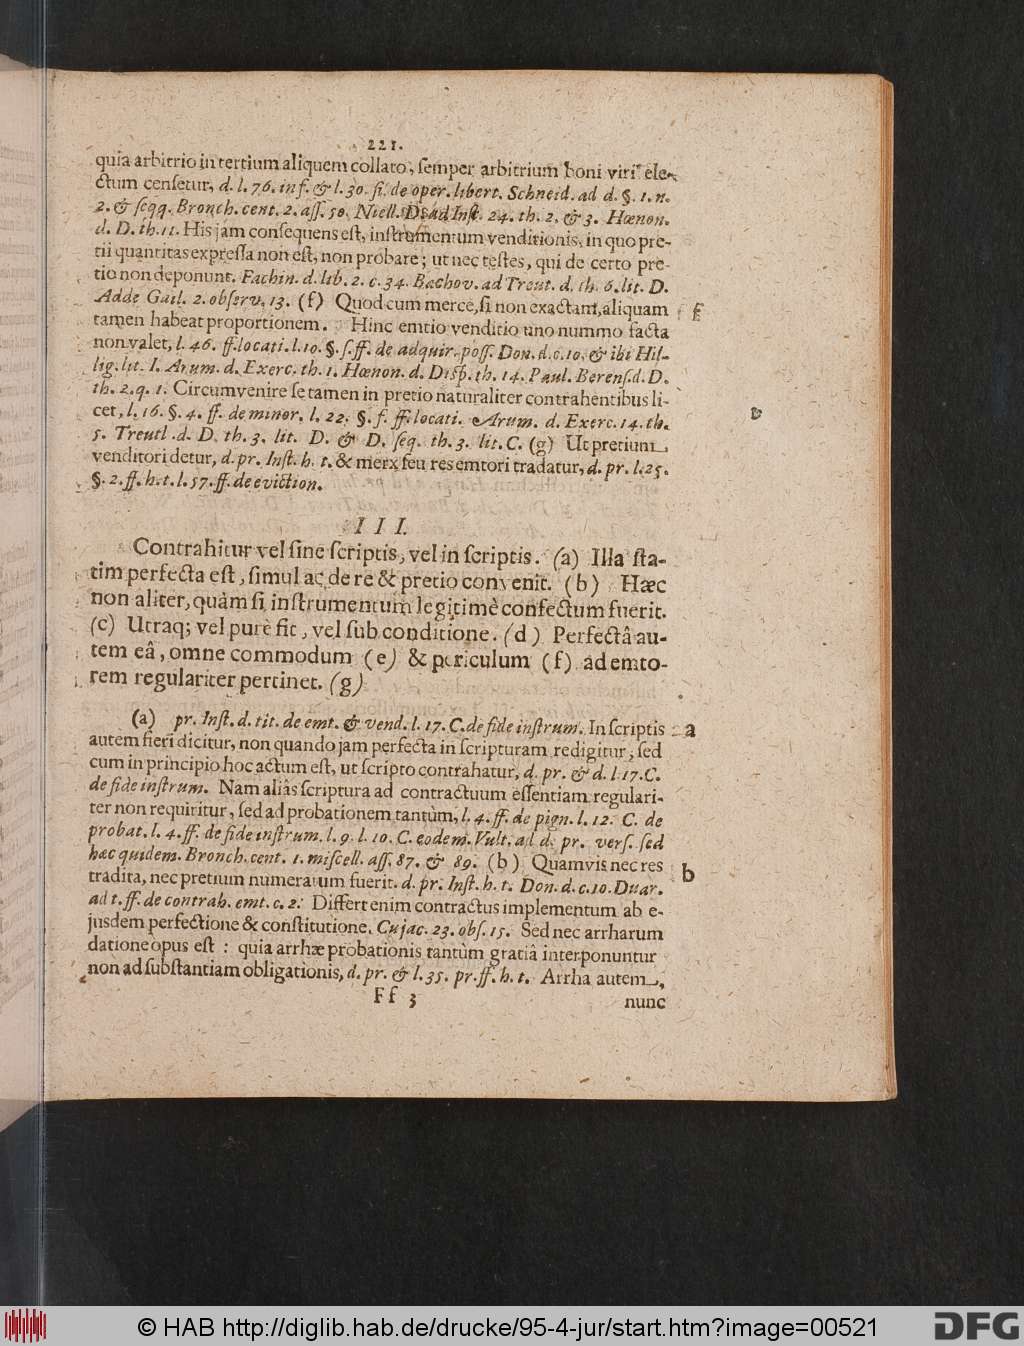 221.
quia arbitrio in tertium aliquem collato, semper arbitrium boni viri ele-
ctum censetur, d. l. 76. inf. & l. 30. ff. de oper. libert. Schneid. ad d. §. 1. n.
2. & seqq. Bronch. cent. 2. ass. 50. Niell. Disad Inst. 24. th. 2. & 3. Hœnon.
d. D. th. 11. His jam consequens est, instrumentum venditionis, in quo pre-
tii quantitas expressa non est, non probare; ut nec testes, qui de certo pre-
tio non deponunt. Fachin. d. lib. 2. c. 34. Bachov. ad Treut. d. th. 6. lit. D.
Adde Gail. 2. observ. 13. (f) Quod cum merce, si non exactam, aliquam f
tamen habeat proportionem. Hinc emtio venditio uno nummo facta
non valet, l. 46. ff. locati. l. 10. §. f. ff. de adquir. poss. Don. d. c. 10. & ibi Hil-
lig. lit. I. Arum. d. Exerc. th. 1. Hœnon. d. Disp. th. 14. Paul. Berens. d. D.
th. 2. q. 1. Circumvenire se tamen in pretio naturaliter contrahentibus li-
cet, l. 16. §. 4. ff. de minor. l. 22. §. f. ff. locati. Arum. d. Exerc. 14. th.
5. Treutl. d. D. th. 3. lit. D. & D. seq. th. 3. lit. C. (g) Ut pretium
venditori detur, d. pr. Inst. h. t. & merx seu res emtori tradatur, d. pr. l. 25.
§. 2. ff. h. t. l. 57. ff. de eviction.
III.
Contrahitur vel sine scriptis, vel in scriptis. (a) Illa sta-
tim perfecta est, simul ac de re & pretio convenit. (b) Hæc
non aliter, quàm si instrumentum legitimè confectum fuerit.
(c) Utraq; vel purè fit, vel sub conditione. (d) Perfectâ au-
tem eâ, omne commodum (e) & periculum (f) ad emto-
rem regulariter pertinet. (g)
(a) pr. Inst. d. tit. de emt. & vend. l. 17. C. de fide instrum. In scriptis a
autem fieri dicitur, non quando jam perfecta in scripturam redigitur, sed
cum in principio hoc actum est, ut scripto contrahatur, d. pr. & d. l. 17. C.
de fide instrum. Nam aliâs scriptura ad contractuum essentiam regulari-
ter non requiritur, sed ad probationem tantùm, l. 4. ff. de pign. l. 12. C. de
probat. l. 4. ff. de fide instrum. l. 9. l. 10. C. eodem. Vult. ad d. pr. vers. sed
hæc quidem. Bronch. cent. 1. miscell. ass. 87. & 89. (b) Quamvis nec res b
tradita, nec pretium numeratum fuerit. d. pr. Inst. h. t. Don. d. c. 10. Duar.
ad t. ff. de contrah. emt. c. 2. Differt enim contractus implementum ab e-
jusdem perfectione & constitutione. Cujac. 23. obs. 15. Sed nec arrharum
datione opus est: quia arrhæ probationis tantùm gratiâ interponuntur
non ad substantiam obligationis, d. pr. & l. 35. pr. ff. h. t. Arrha autem,
Ff 3 nunc
© HAB http://diglib.hab.de/drucke/95-4-jur/start.htm?image=00521
DFG